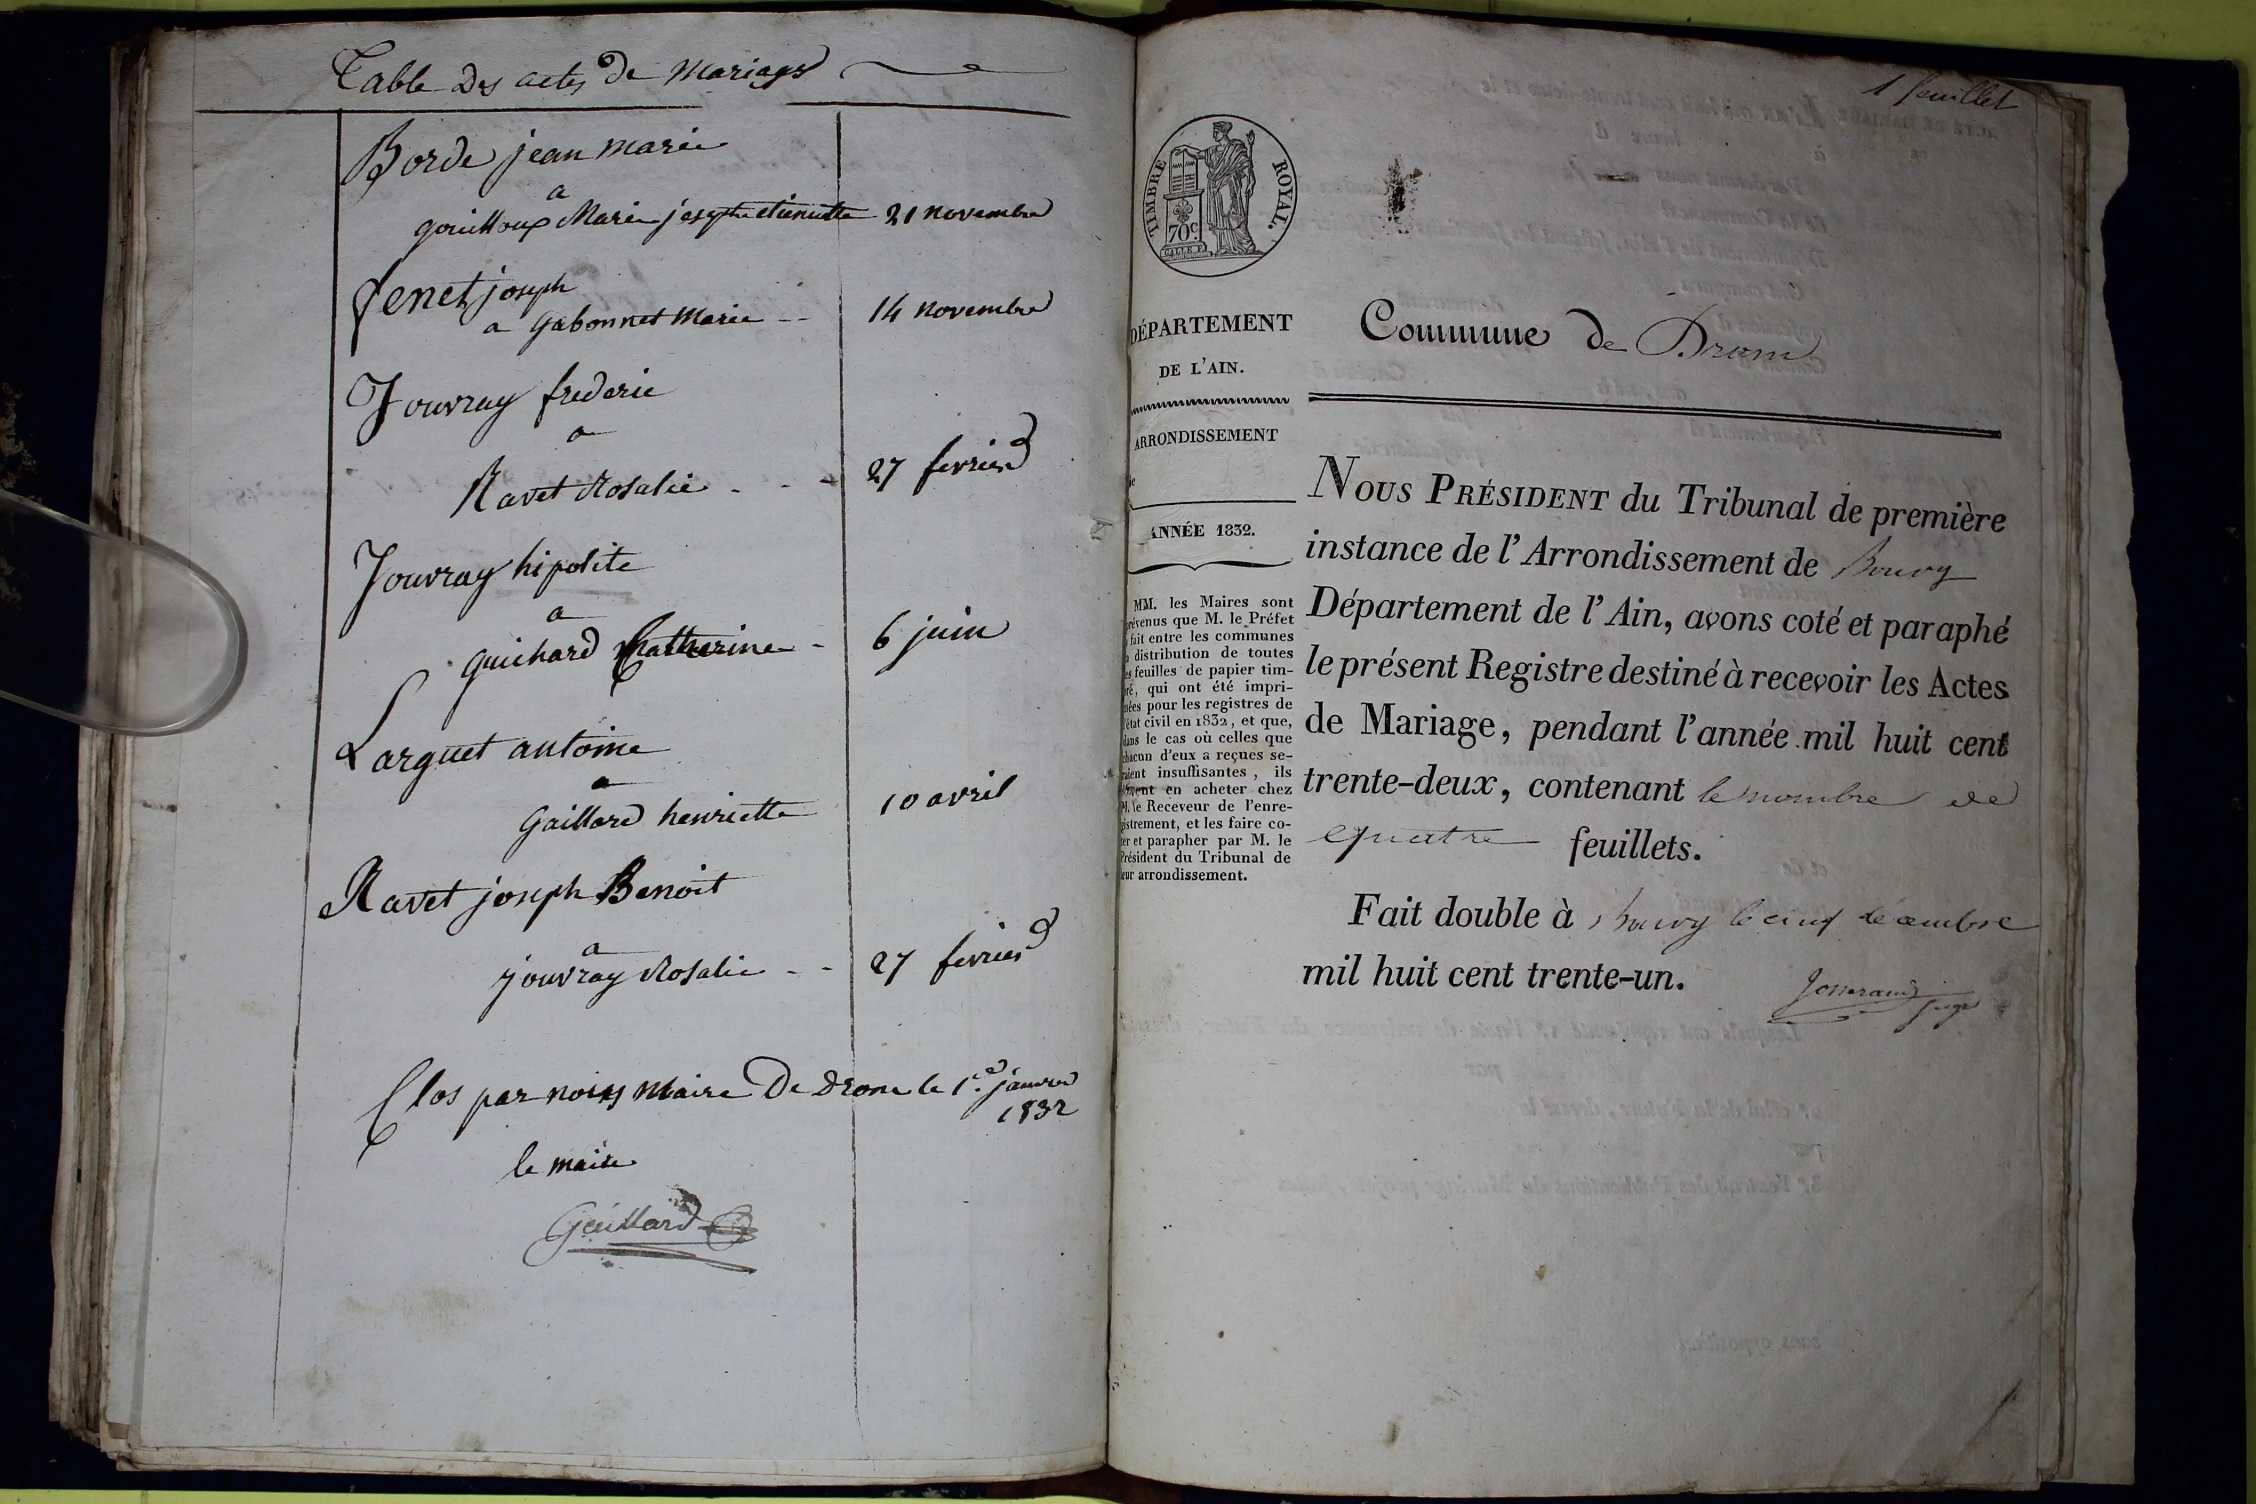 Table des actes de mariages
Borde jean marie
a
gouilloux Marie josephe etiennette 21 novembre
fenet joseph
a Gabonnet Marie -- 14 novembre
Jouvray frederic
a
Ravet Rosalie - - - 27 fevrier
Jouvray hipolite
a
guichard Catherine - 6 juin
Larguet antoine
a
Gaillard henriette 10 avril
Ravet joseph Benoit
a
jouvray Rosalie - - 27 fevrier
Clos par nous Maire De drom le 1er janvier
1832
le maire
Gaillard
1 feuillet
TIMBRE ROYAL.
70c.
DÉPARTEMENT
DE L'AIN.
ARRONDISSEMENT
de
ANNÉE 1832.
MM. les Maires sont
prévenus que M. le Préfet
a fait entre les communes
la distribution de toutes
les feuilles de papier tim-
bré, qui ont été impri-
mées pour les registres de
l'état civil en 1832, et que,
dans le cas où celles que
chacun d'eux a reçues se-
raient insuffisantes, ils
doivent en acheter chez
M. le Receveur de l'enre-
gistrement, et les faire co-
ter et parapher par M. le
Président du Tribunal de
leur arrondissement.
Commune de Drom
NOUS PRÉSIDENT du Tribunal de première
instance de l'Arrondissement de Bourg
Département de l'Ain, avons coté et paraphé
le présent Registre destiné à recevoir les Actes
de Mariage, pendant l'année mil huit cent
trente-deux, contenant le nombre de
quatre feuillets.
Fait double à Bourg le cinq décembre
mil huit cent trente-un.
Josserand
juge